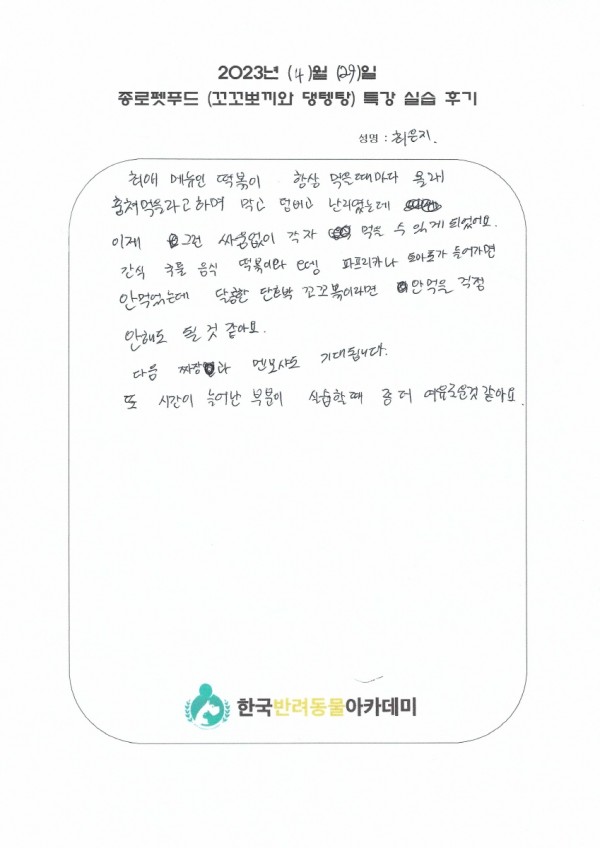 2023년 (4)월 (29)일
종로펫푸드 (꼬꼬뽀끼와 댕텡탕) 특강 실습 후기
성명 : 최은지.
최애 메뉴인 떡볶이 항상 먹을때마다 몰래
훔쳐먹을라고하며 막고 덤비고 난리였는데
이제 그런 싸움없이 각자 먹을 수 있게 되었어요.
간식 주를 음식 떡볶이와 오뎅 파프리카나 토마토가 들어가면
안먹었는데 달콤한 단호박 꼬꼬볶이라면 안먹을 걱정
안해도 될 것 같아요.
다음 짜장과 멘보샤도 기대됩니다.
또 시간이 늘어난 부분이 실습할때 좀 더 여유로운것 같아요.
한국반려동물아카데미